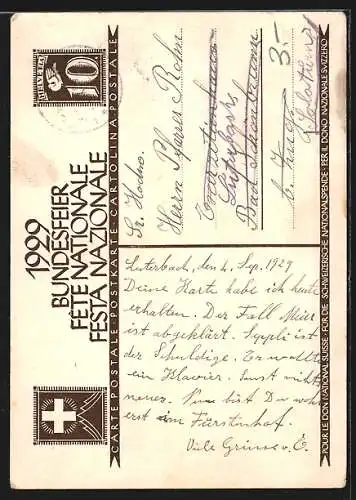 HELVETIA
10
1929
BUNDESFEIER
FÊTE NATIONALE
FESTA NAZIONALE
CARTE POSTALE · POSTKARTE · CARTOLINA POSTALE
Sr. Hochw.
Herrn Pfarrer Rohn
Bad
3.-
Luterbach, den 4. Sep. 1929
Deine Karte habe ich heute
erhalten. Der Fall Meier
ist abgeklärt. Seppli ist
der Schuldige. Er wollte
ein Klavier. Sonst nichts
neues. Nun bist Du wohl
erst im Fürstenhof.
Viele Grüsse v. E.
POUR LE DON NATIONAL SUISSE · FÜR DIE SCHWEIZERISCHE NATIONALSPENDE · PER IL DONO NAZIONALE SVIZZERO